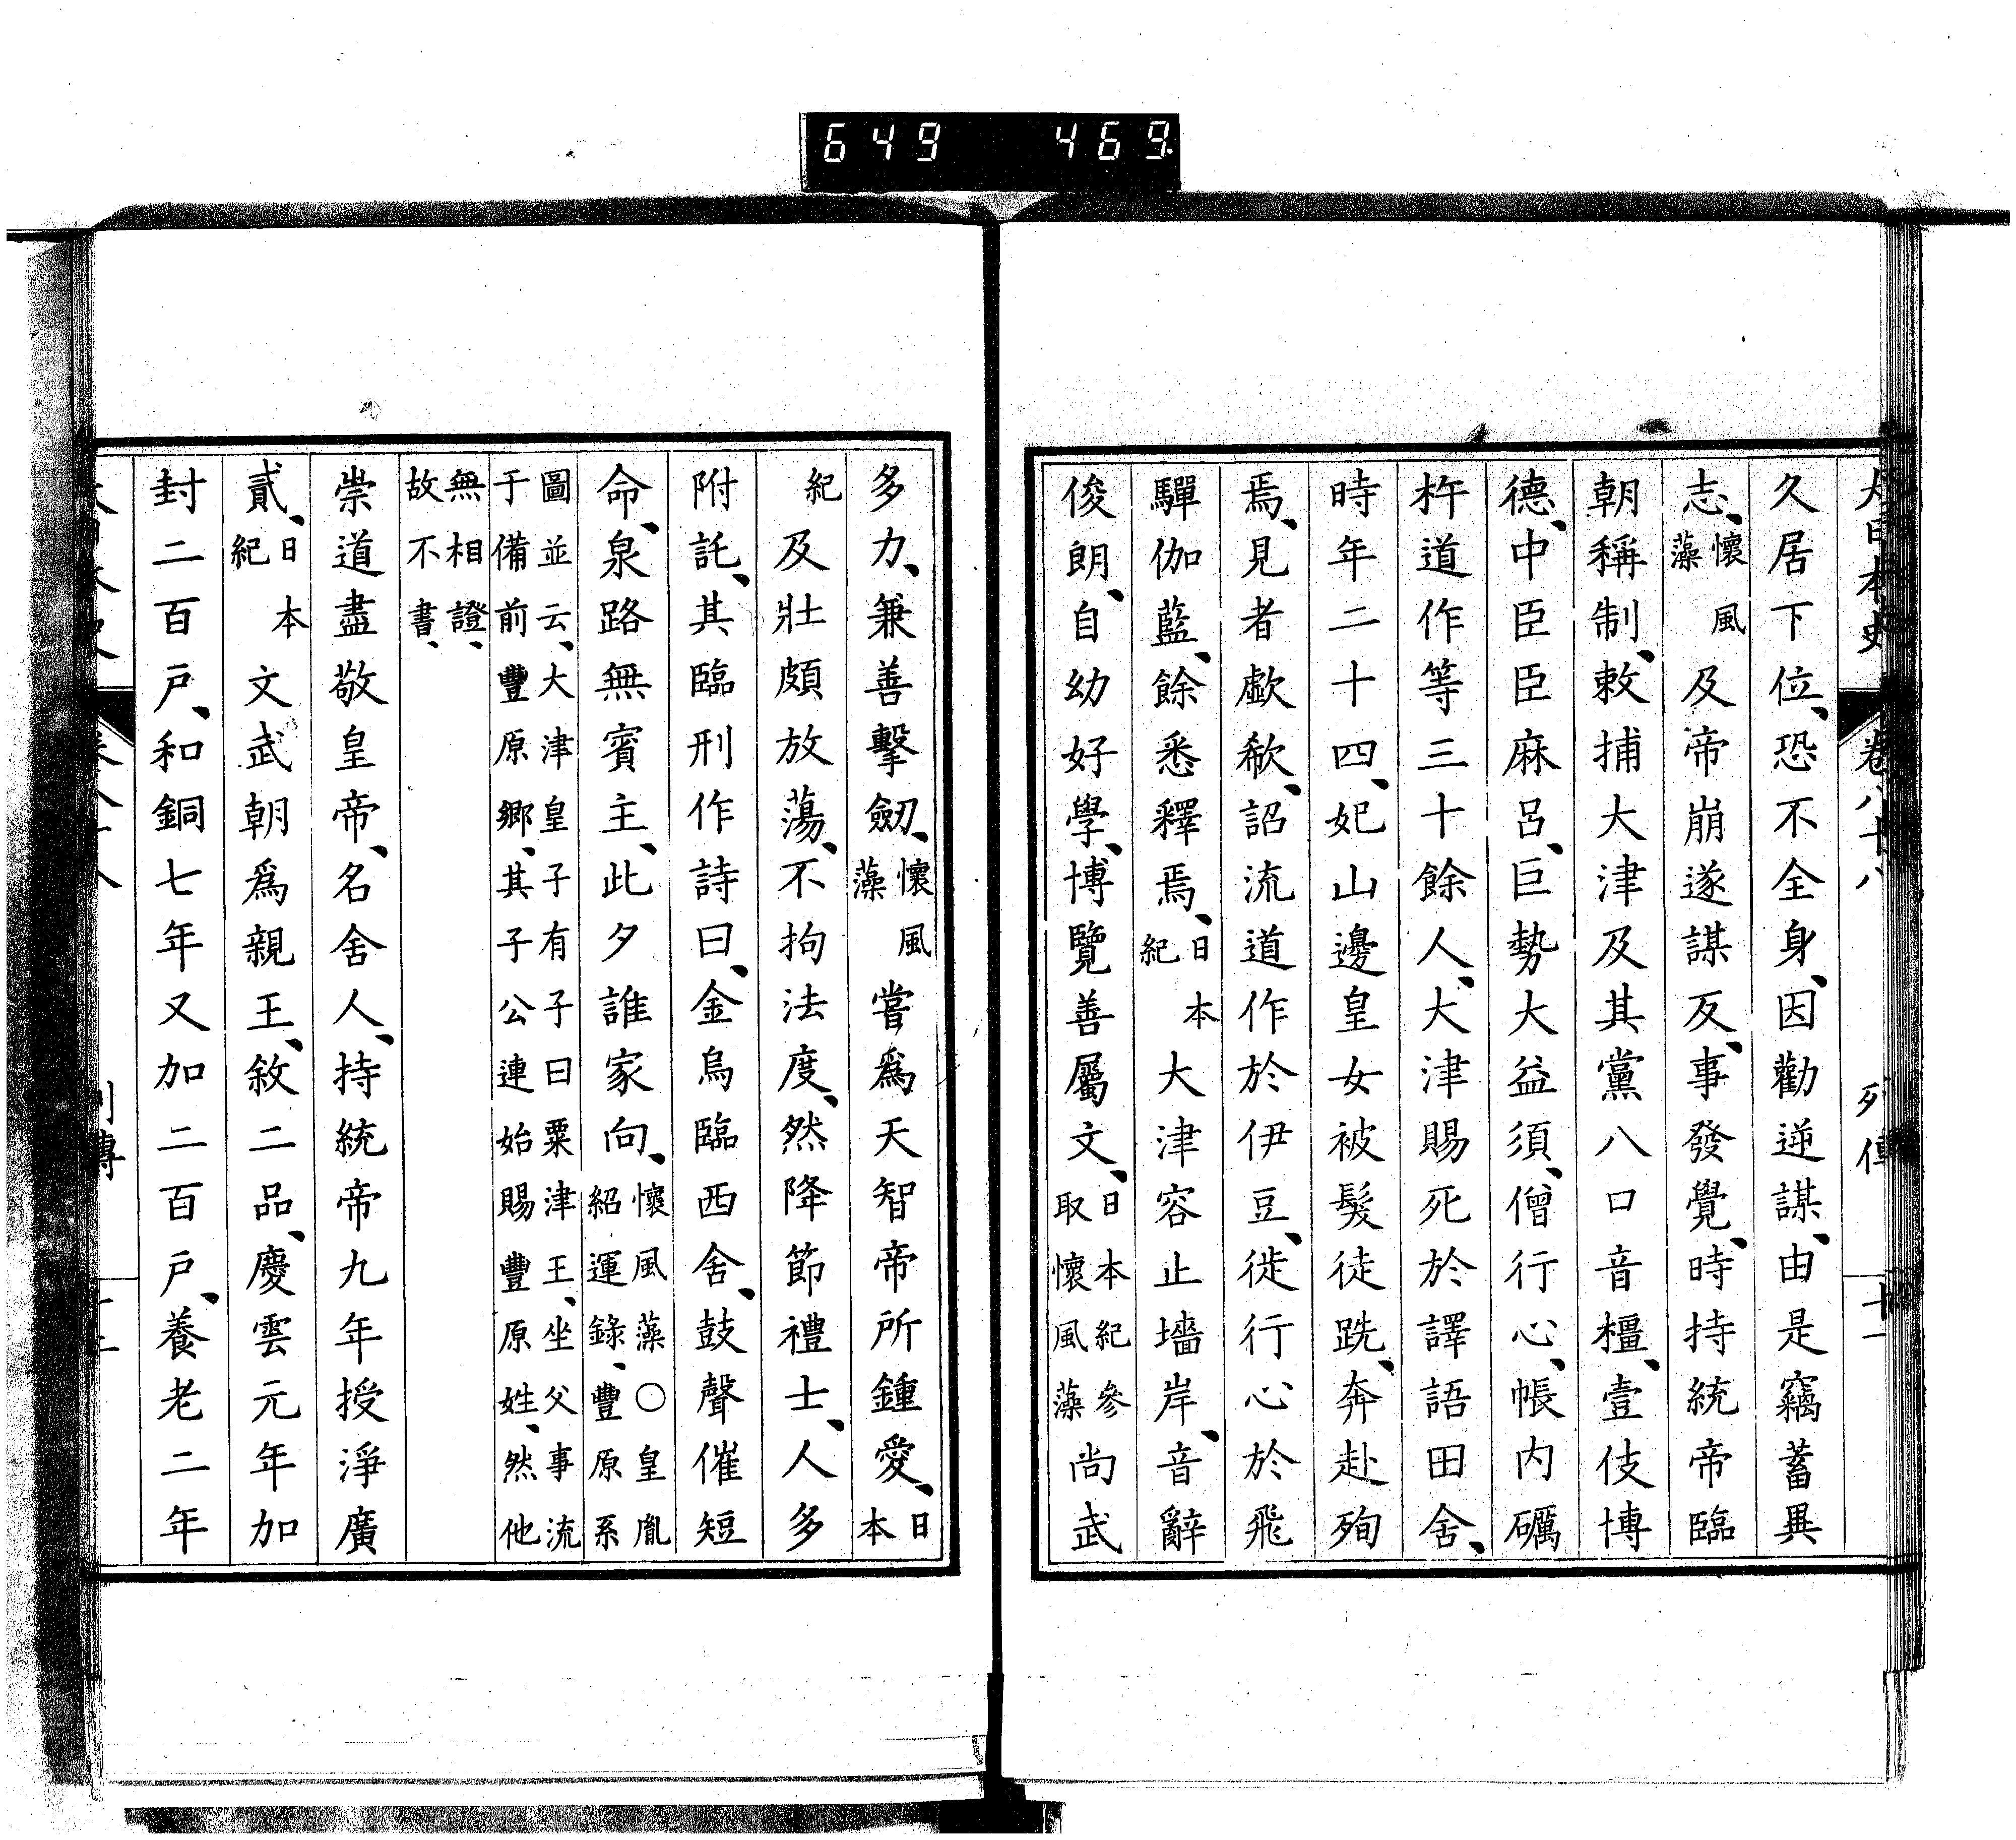 649 469
大日本史 卷八十八 列傳 十一
久居下位、恐不全身、因勸逆謀、由是竊蓄異
志、懷風藻及帝崩遂謀反、事發覺、時持統帝臨
朝稱制、敕捕大津及其黨八口音橿、壹伎博
德、中臣臣麻呂、巨勢大益須、僧行心、帳内礪
杵道作等三十餘人、大津賜死於譯語田舍、
時年二十四、妃山邊皇女被髮徒跣、奔赴殉
焉、見者歔欷、詔流道作於伊豆、徙行心於飛
驒伽藍、餘悉釋焉、日本紀大津容止墻岸、音辭
俊朗、自幼好學、博覽善屬文、日本紀參取懷風藻尚武
多力、兼善擊劒、懷風藻嘗爲天智帝所鍾愛、日本
紀及壯頗放蕩、不拘法度、然降節禮士、人多
附託、其臨刑作詩曰、金烏臨西舍、鼓聲催短
命、泉路無賓主、此夕誰家向、懷風藻○皇胤紹運錄、豐原系
圖並云、大津皇子有子曰粟津王、坐父事流于備前豐原鄉、其子公連始賜豐原姓、然他
無相證、故不書、
崇道盡敬皇帝、名舍人、持統帝九年授淨廣
貳、日本紀文武朝爲親王、敘二品、慶雲元年加
封二百戸、和銅七年又加二百戸、養老二年